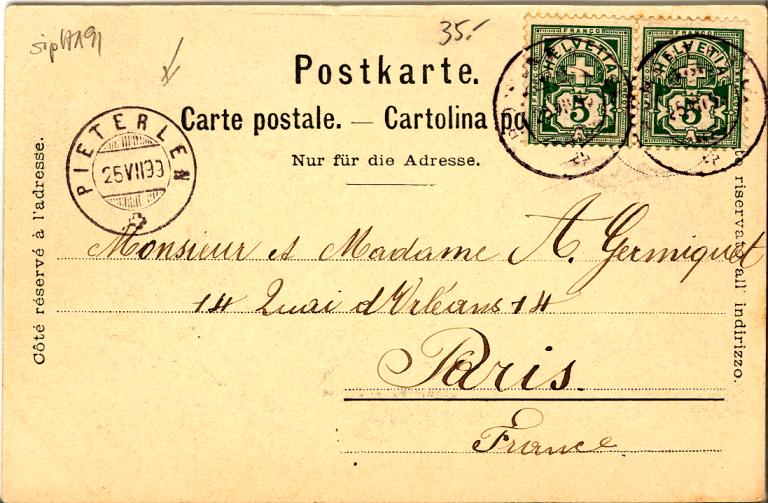 35.-
FRANCO FRANCO
HELVETIA HELVETIA
5 5
Postkarte.
Carte postale. — Cartolina po
Nur für die Adresse.
PIETERLEN
25 VII 99
Côté réservé à l'adresse.
riservato all' indirizzo.
Monsieur et Madame A. Germiquet
14 Quai d'Orléans 14
Paris.
France.